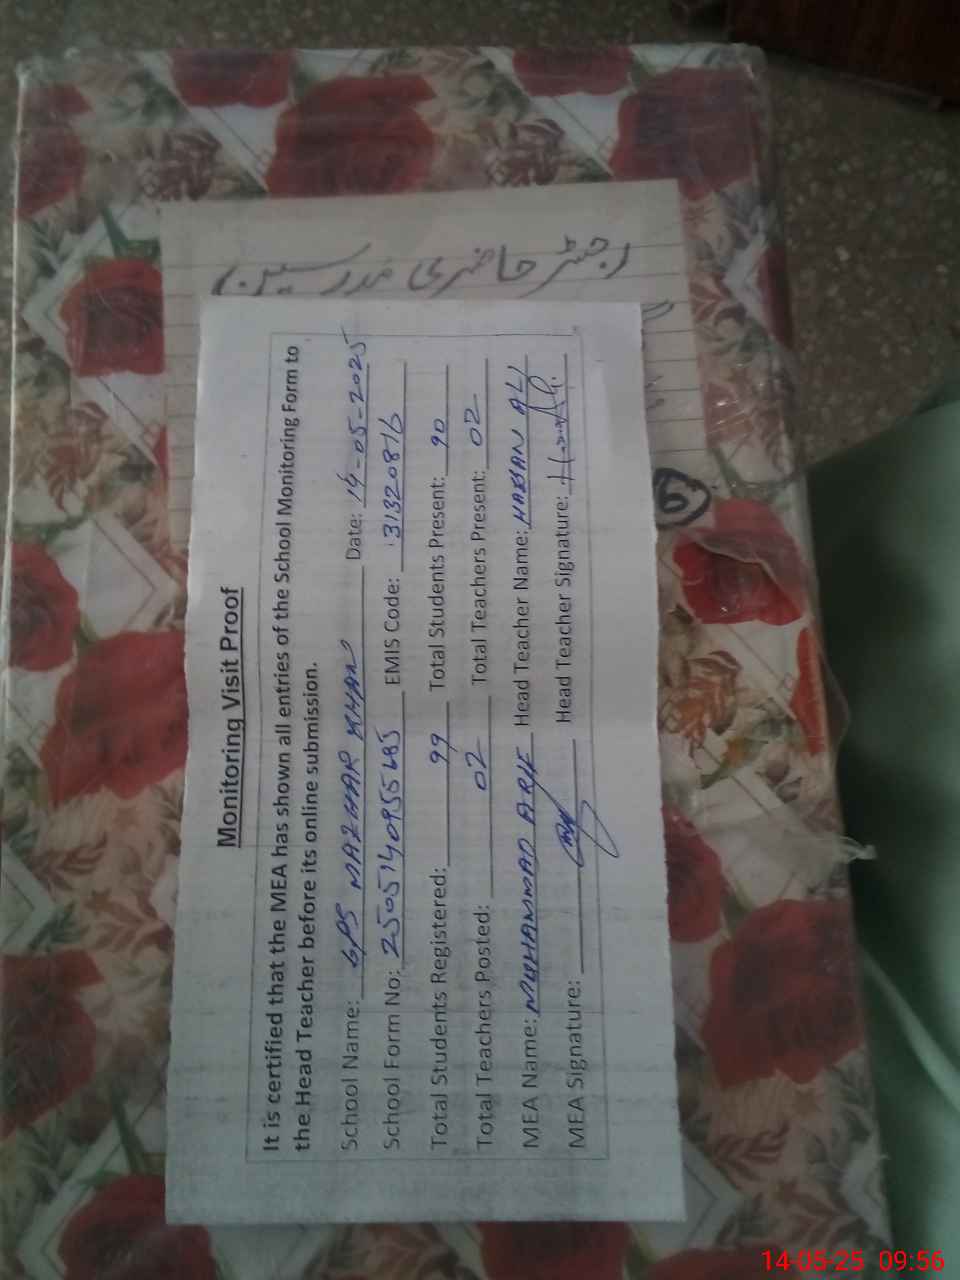 رجسٹر حاضری مدرسین
Monitoring Visit Proof
It is certified that the MEA has shown all entries of the School Monitoring Form to
the Head Teacher before its online submission.
School Name: GPS MAZHAR KHAN Date: 14-05-2025
School Form No: 250514095568S EMIS Code: 31320816
Total Students Registered: 99 Total Students Present: 90
Total Teachers Posted: 02 Total Teachers Present: 02
MEA Name: MUHAMMAD ARIF Head Teacher Name: HASSAN ALI
MEA Signature: Head Teacher Signature:
14-05-25 09:56